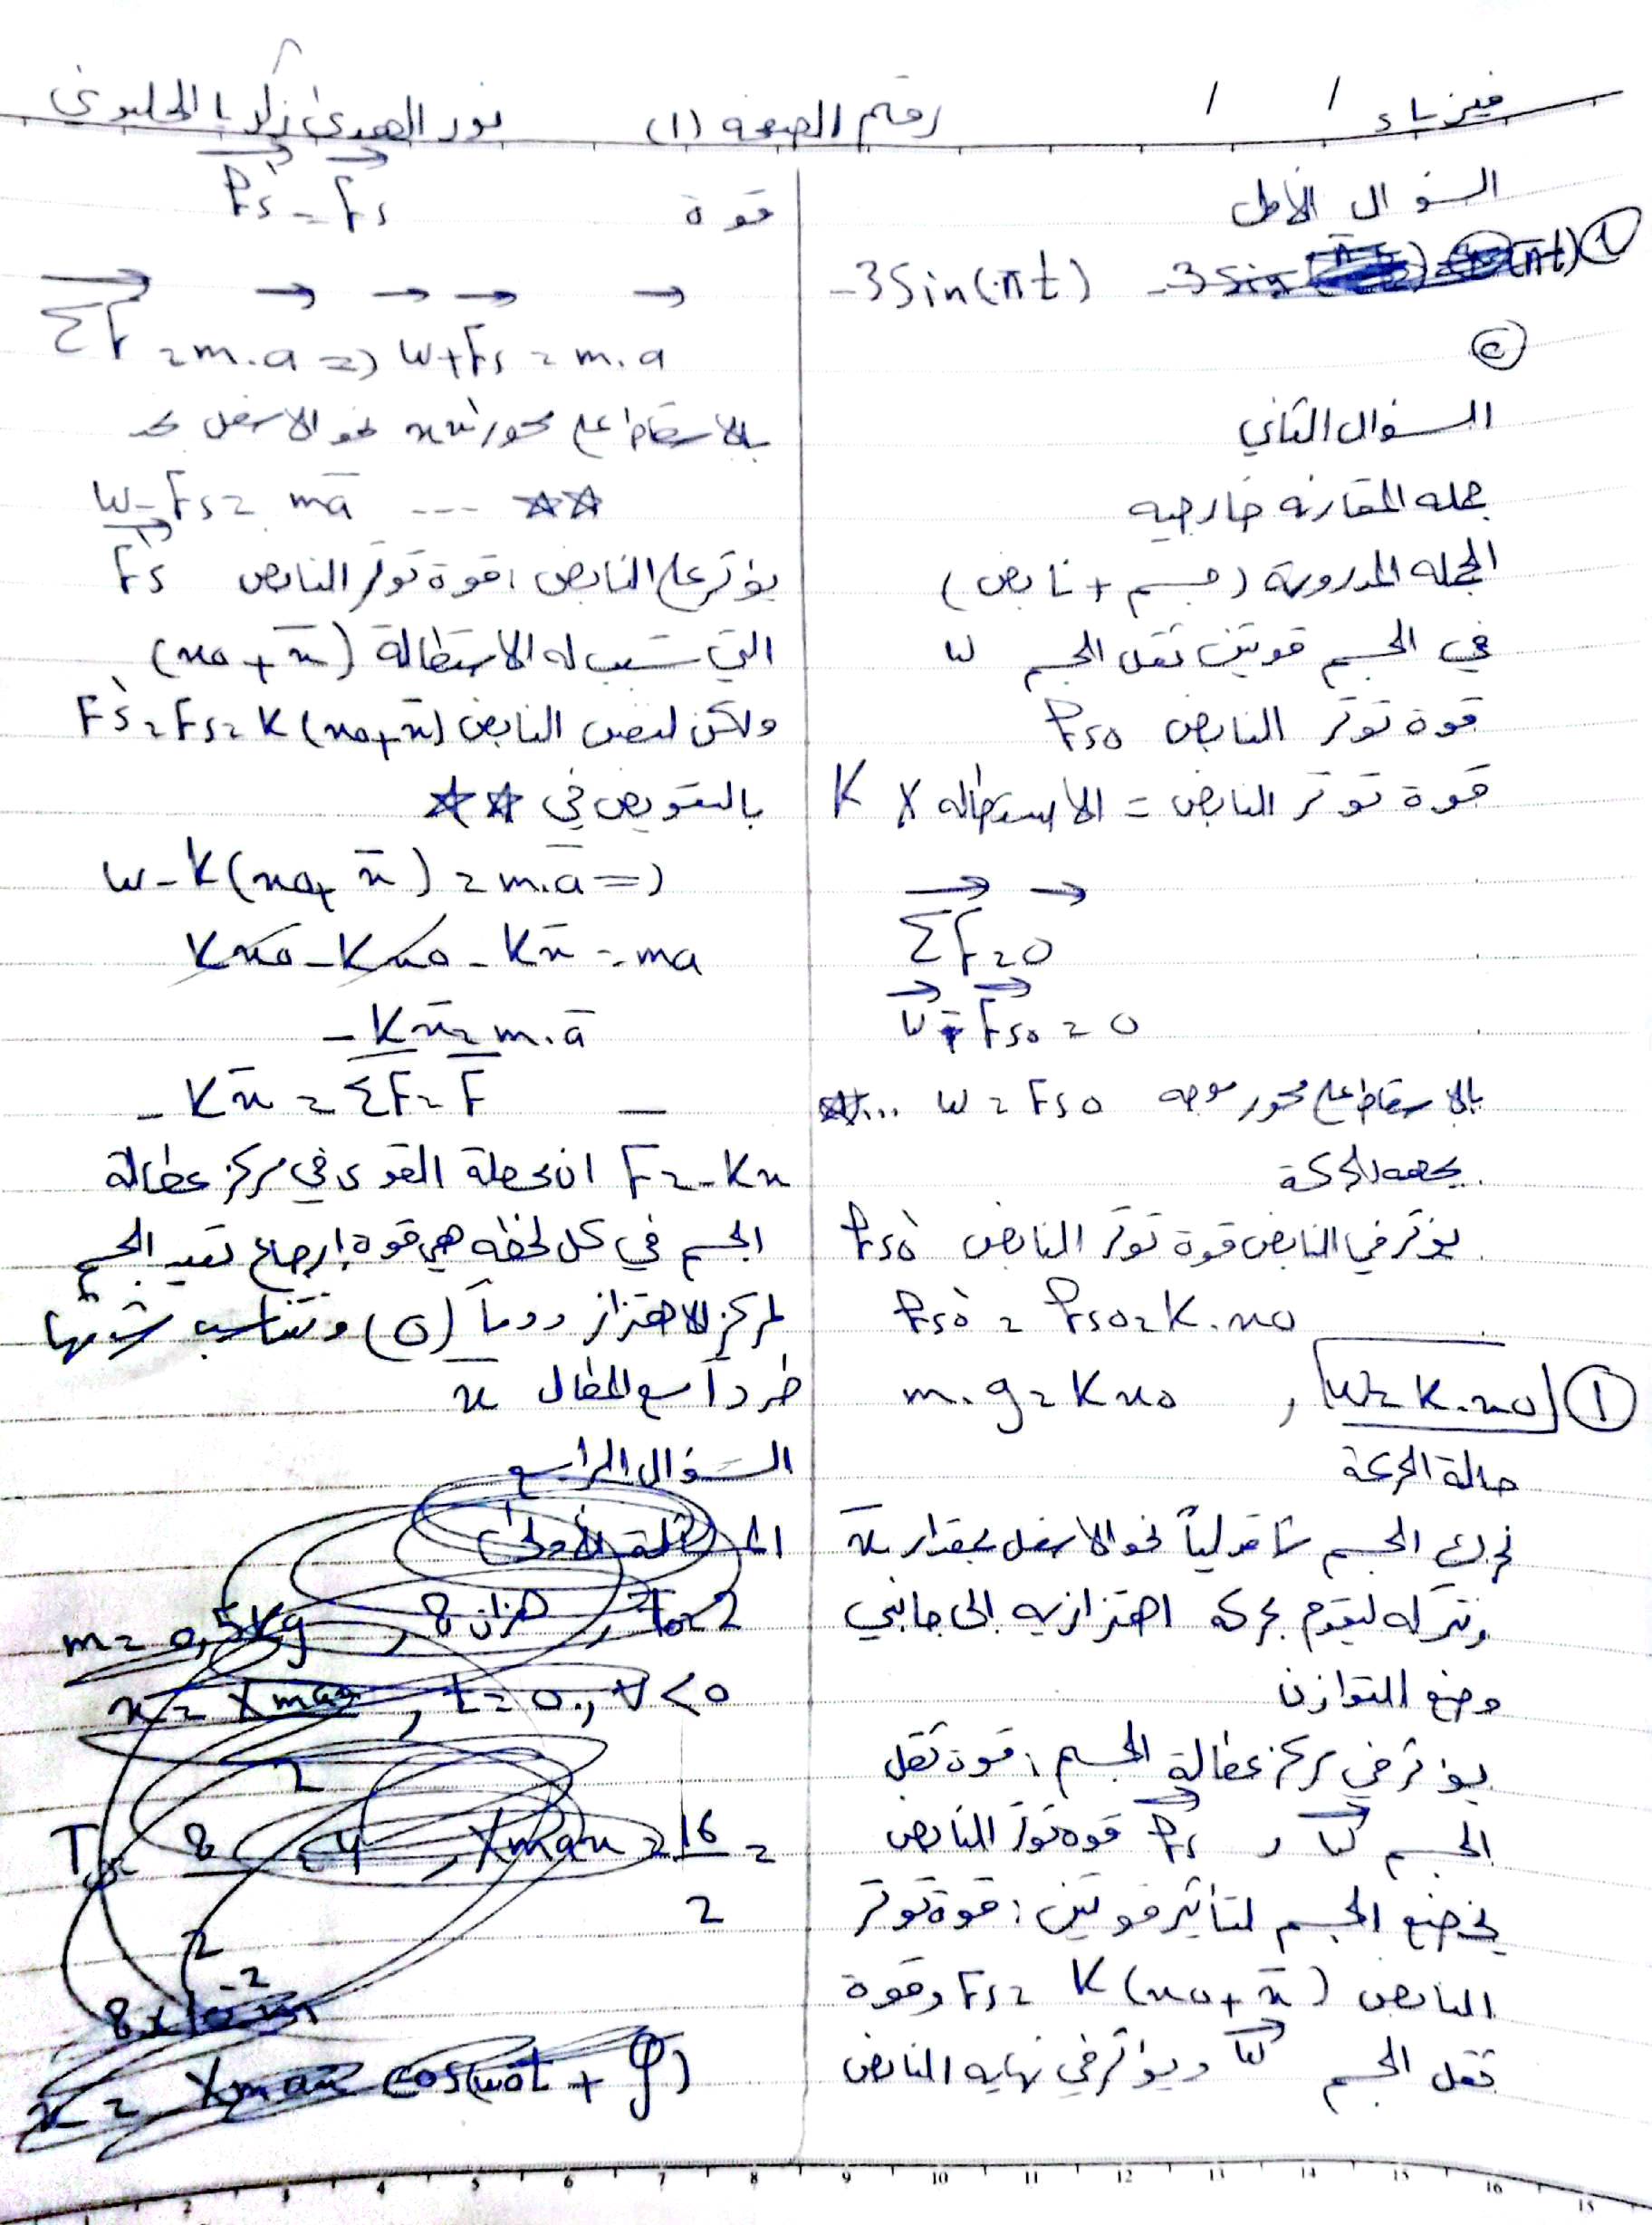 فيزياء / / رقم الصفحة (1) نور الهدى زكريا الحلبوني
السؤال الأول
① -3 Sin(πt)
②
السؤال الثاني
جملة المقارنة خارجية
الجملة المدروسة (جسم + نابض)
في الجسم قوتين ثقل الجسم W
قوة توتر النابض Fs0
قوة توتر النابض = الاستطالة × K
ΣF = 0
W + Fs0 = 0
بالاسقاط على محور موجه W = Fs0 ...☆
بجهة الحركة
يؤثر في النابض قوة توتر النابض Fs0'
Fs0' = Fs0 = K.x0
① W = K.x0 , m.g = K x0
حالة الحركة
نحرك الجسم شاقولياً نحو الاسفل بمقدار x̄
ونتركه ليقوم بحركة اهتزازية الى جانبي
وضع التوازن
يؤثر في مركز عطالة الجسم : قوة ثقل
الجسم W و Fs قوة توتر النابض
يخضع الجسم لتأثير قوتين : قوة توتر
النابض Fs = K(x0 + x̄) وقوة
ثقل الجسم W ويؤثر في نهاية النابض
قوة Fs' = Fs
ΣF = m.a => W + Fs = m.a
بالاسقاط على محور xx' نحو الاسفل نجد
W - Fs = mā --- ☆☆
يؤثر على النابض : قوة توتر النابض Fs'
التي تسبب له الاستطالة (x0 + x̄)
ولكن لنفس النابض Fs' = Fs = K(x0 + x̄)
بالتعويض في ☆☆
W - K(x0 + x̄) = m.ā =>
Kx0 - Kx0 - Kx̄ = ma
- Kx̄ = m.ā
- Kx̄ = ΣF = F
F = -Kx ان محصلة القوى في مركز عطالة
الجسم في كل لحظة هي قوة إرجاع تعيد الجسم
لمركز الاهتزاز دوماً (0) وتتناسب شدتها
طرداً مع المطال x̄
السؤال الرابع
المسألة الأولى
m = 0,5 Kg , 8 , T0 = 2
x = Xmax , t = 0 , v < 0
Xmax = 16/2 =
8 × 10⁻² m
x = Xmax cos(ω0t + φ)